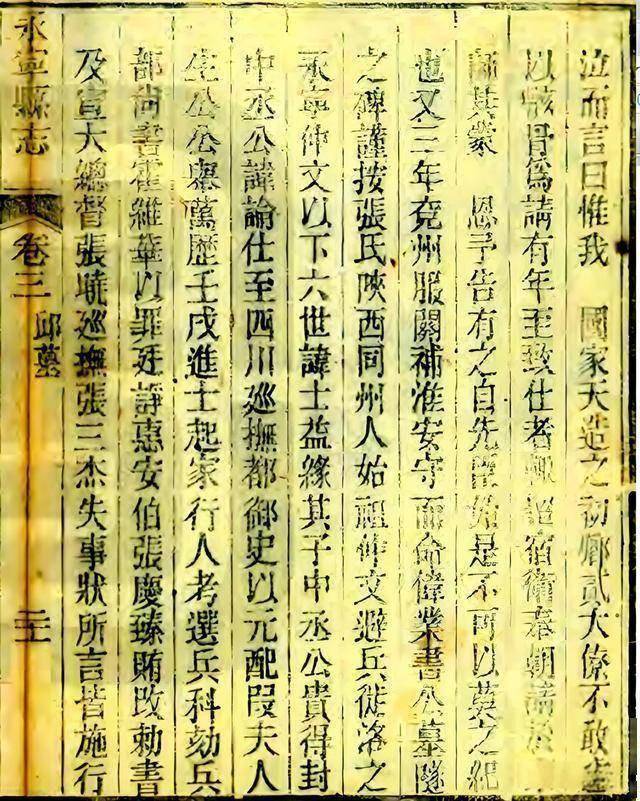 泣而言曰惟我　國家天造之初卿貳大僚不敢
以骸骨爲請有年至致仕者　宿衛奉朝請
　其蒙　恩予告有之自先　始是不可以莫之紀
也又三年兗州服闋補淮安守而命偉業書公墓隧
之碑謹按張氏陝西同州人始祖仲文避兵徙洛之
永寧仲文以下六世諱士益緣其子中丞公貴得封
中丞公諱論仕至四川廵撫都御史以元配段夫人
生公公舉萬歷壬戌進士起家行人考選兵科劾兵
部尚書霍維華以罪廷諍惠安伯張慶臻賄改勅書
及宣大總督張曉廵撫張三杰失事狀所言皆施行
永寧縣志
卷三
邱墓